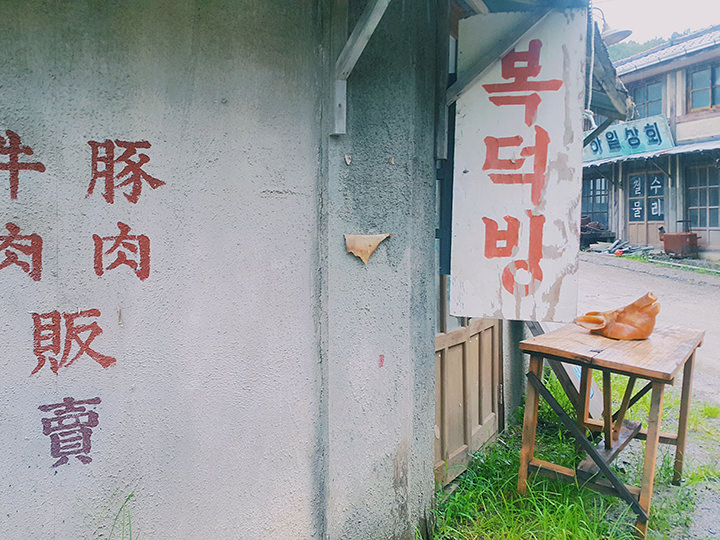 豚肉
牛肉
販賣
복덕방
하일상회
철물
수리